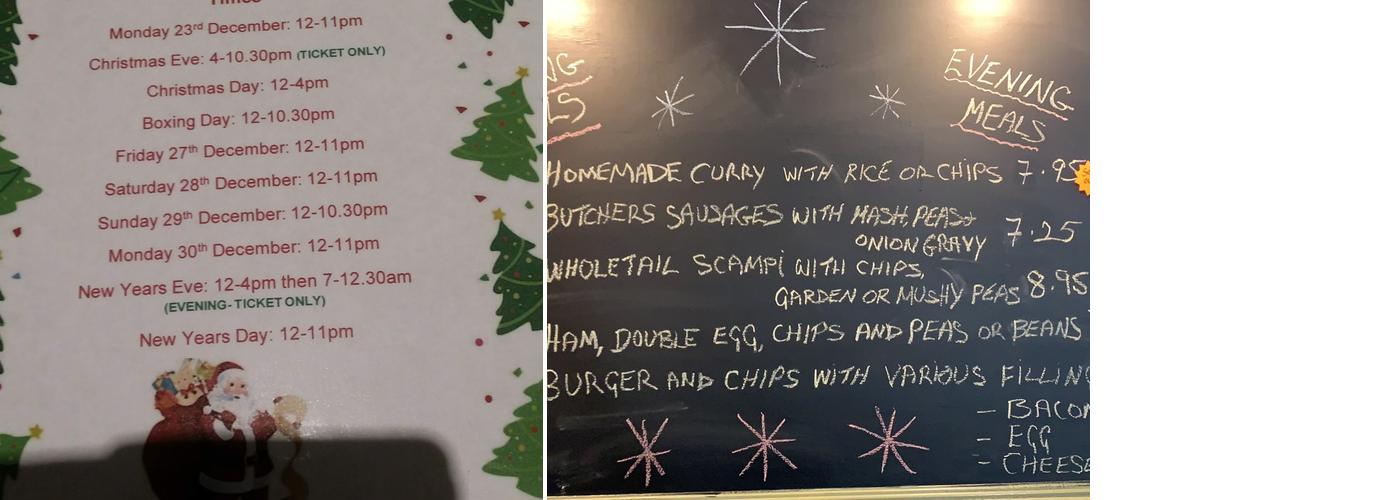 Times
Monday 23rd December: 12-11pm
Christmas Eve: 4-10.30pm (TICKET ONLY)
Christmas Day: 12-4pm
Boxing Day: 12-10.30pm
Friday 27th December: 12-11pm
Saturday 28th December: 12-11pm
Sunday 29th December: 12-10.30pm
Monday 30th December: 12-11pm
New Years Eve: 12-4pm then 7-12.30am
(EVENING- TICKET ONLY)
New Years Day: 12-11pm
EVENING
MEALS
HOMEMADE CURRY WITH RICE OR CHIPS 7.95
BUTCHERS SAUSAGES WITH MASH, PEAS +
ONION GRAVY 7.25
WHOLETAIL SCAMPI WITH CHIPS,
GARDEN OR MUSHY PEAS 8.95
HAM, DOUBLE EGG, CHIPS AND PEAS OR BEANS
BURGER AND CHIPS WITH VARIOUS FILLING
- BACON
- EGG
- CHEESE